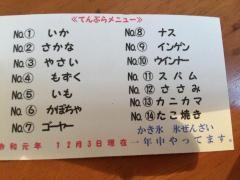 ≪てんぷらメニュー≫
No.① いか
No.② さかな
No.③ やさい
No.④ もずく
No.⑤ いも
No.⑥ かぼちゃ
No.⑦ ゴーヤー
No.⑧ ナス
No.⑨ インゲン
No.⑩ ウインナー
No.⑪ スパム
No.⑫ ささみ
No.⑬ カニカマ
No.⑭ たこ焼き
かき氷 氷ぜんざい
一年中やってます。
令和元年 12月3日現在